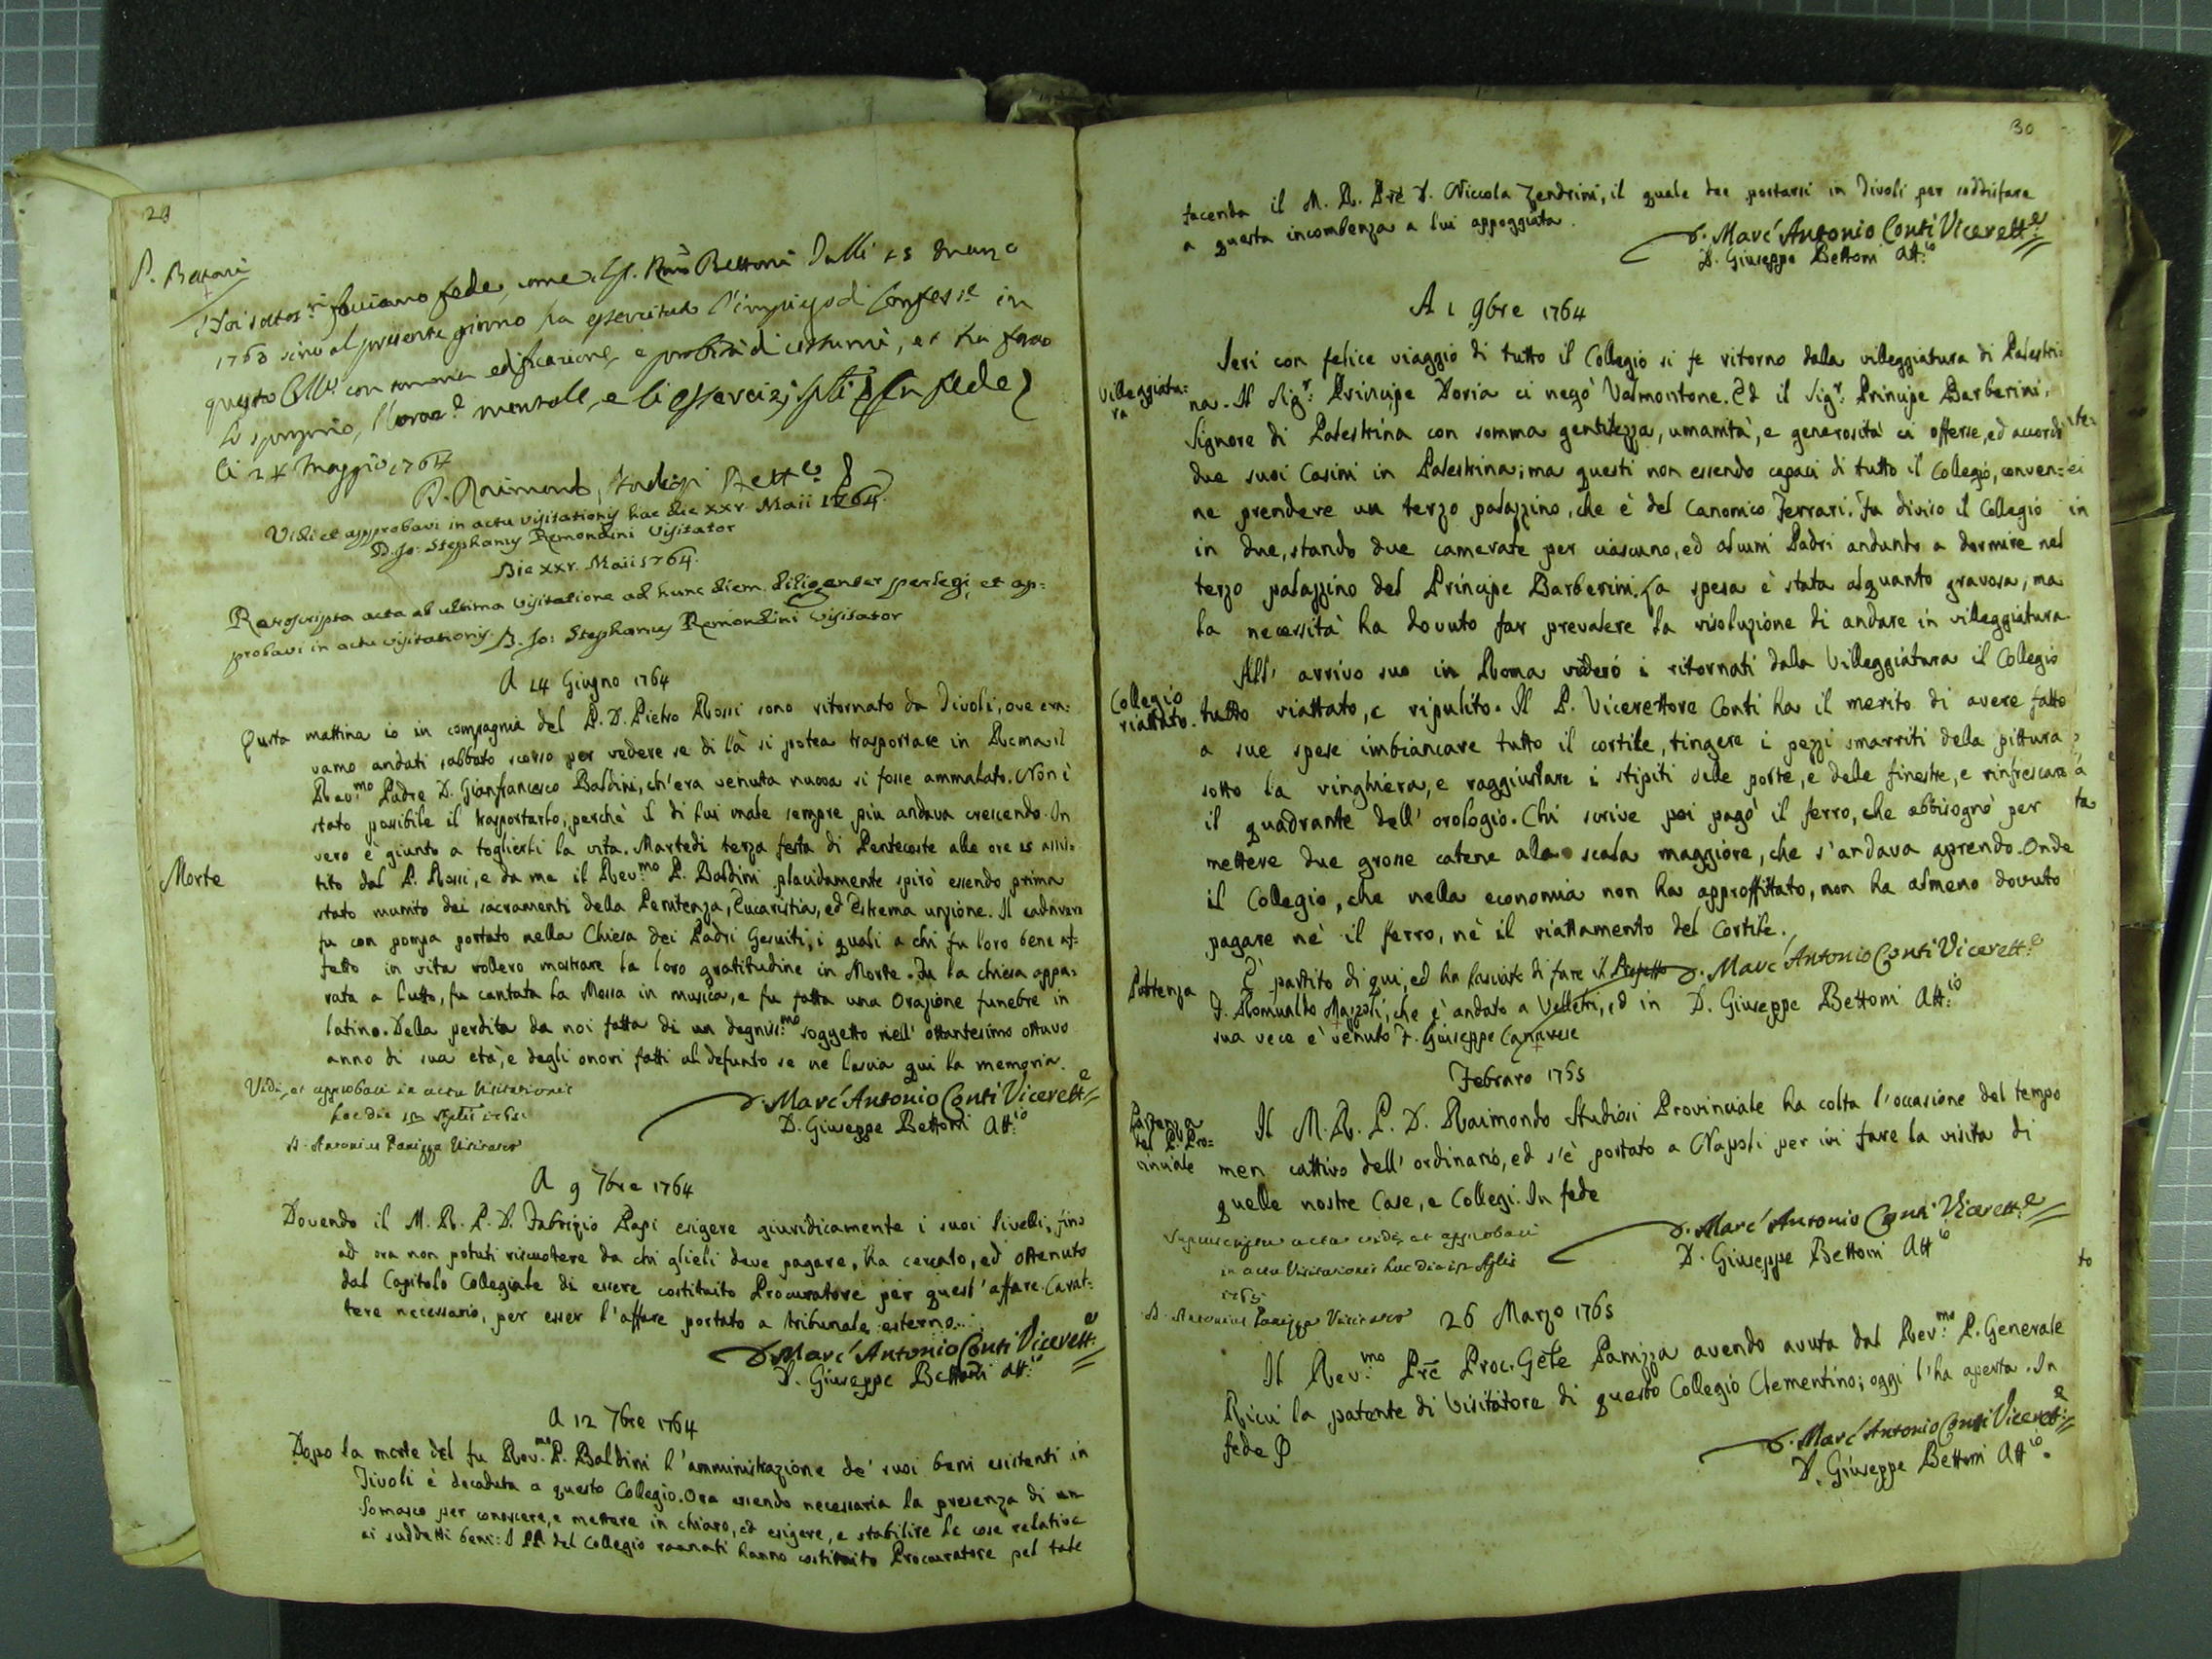 29
P. Bettoni
Noi sottos.ti facciamo fede, come il P. Bettoni dalli 25 marzo
1763 sino al presente giorno ha esercitato l'impiego di Confess.e in
questo Coll.o con somma edificazione, e probità di costumi, et ha fatto
lo spurgno, l'oraz.e mentale, e li essercizj sp.li In fede
li 24 Maggio 1764
D. Raimondo Studiosi Rett.e
Vidi et approbavi in actu visitationis hac die xxv. Maii 1764.
D. Jo: Stephanus Remondini Visitator
Die xxv. Maii 1764.
Retroscripta acta ab ultima visitatione ad hunc diem diligenter perlegi, et ap=
probavi in actu visitationis. D. Jo: Stephanus Remondini Visitator
A 14 Giugno 1764
Questa mattina io in compagnia del P. D. Pietro Rossi sono ritornato da Tivoli, ove era=
vamo andati sabbato scorso per vedere se di là si potea trasportare in Roma il
Rev.mo Padre D. Gianfrancesco Baldini, ch'era venuta nuova si fosse ammalato. Non è
stato possibile il trasportarlo, perchè il di lui male sempre più andava crescendo. In
vero è giunto a toglierli la vita. Martedì terza festa di Pentecoste alle ore 15 assi=
Morte
tito dal P. Rossi, e da me il Rev.mo P. Baldini placidamente spirò essendo prima
stato munito dei sacramenti della Penitenza, Eucaristia, ed Estrema unzione. Il cadavere
fu con pompa portato nella Chiesa dei Padri Gesuiti, i quali a chi fu loro bene af=
fetto in vita vollero mostrare la loro gratitudine in Morte. Fu la chiesa appa=
rata a lutto, fu cantata la Messa in musica, e fu fatta una Orazione funebre in
latino. Della perdita da noi fatta di un degniss.mo soggetto nell' ottantesimo ottavo
anno di sua età, e degli onori fatti al defunto se ne lascia qui la memoria.
Vidi, et approbavi in actu Visitationis
hac die
D. Antonius Panizza Visitator
D. Marc' Antonio Conti Vicerett.e
D. Giuseppe Bettoni Att.io
A 9 7bre 1764
Dovendo il M. R. P. D. Fabrizio Papi esigere giuridicamente i suoi livelli, fino
ad ora non potuti riscuotere da chi glieli deve pagare, ha cercato, ed ottenuto
dal Capitolo Collegiale di essere costituito Procuratore per quest' affare. Carat=
tere necessario, per esser l'affare portato a tribunale esterno.
D. Marc' Antonio Conti Vicerett.e
D. Giuseppe Bettoni Att.io
A 12 7bre 1764
Dopo la morte del fu Rev.mo P. Baldini l'amministrazione de' suoi beni esistenti in
Tivoli è decaduta a questo Collegio. Ora essendo necessaria la presenza di un
Somasco per conoscere, e mettere in chiaro, ed esigere, e stabilire le cose relative
ai suddetti beni: I PP. del Collegio raunati hanno costituito Procuratore pel tale
30
facenda il M. R. Pre D. Niccola Zendrini, il quale dee portarsi in Tivoli per soddisfare
a questa incombenza a lui appoggiata.
D. Marc' Antonio Conti Vicerett.e
D. Giuseppe Bettoni Att.io
A 1 9bre 1764
Villeggiatu=
ra
Ieri con felice viaggio di tutto il Collegio si fe ritorno dalla villeggiatura di Palestri=
na. Il Sig.r Principe Doria ci negò Valmontone. Ed il Sig.r Principe Barberini,
Signore di Palestrina con somma gentilezza, umanità, e generosità ci offerse, ed accordò
due suoi Casini in Palestrina; ma questi non essendo capaci di tutto il Collegio, conven=
ne prendere un terzo palazzino, che è del Canonico Ferrari. Fu diviso il Collegio
in due, stando due camerate per ciascuno, ed alcuni Padri andando a dormire nel
terzo palazzino del Principe Barberini. La spesa è stata alquanto gravosa, ma
la necessità ha dovuto far prevalere la risoluzione di andare in villeggiatura.
All' arrivo suo in Roma videro i ritornati dalla Villeggiatura il Collegio
Collegio
riattato.
tutto riattato, e ripulito. Il P. Vicerettore Conti ha il merito di avere fatto
a sue spese imbiancare tutto il cortile, tingere i pezzi smarriti della pittura
sotto la ringhiera, e raggiustare i stipiti delle porte, e delle finestre, e rinfrescare
il quadrante dell' orologio. Chi scrive poi pagò il ferro, che abbisognò per
mettere due grosse catene alla scala maggiore, che s'andava aprendo. Onde
il Collegio, che nella economia non ha approffittato, non ha almeno dovuto
pagare nè il ferro, nè il riattamento del Cortile.
Partenza
È partito di qui, ed ha lasciato di fare il Prefetto
F. Romualdo Mazzoli, che è andato a Velletri, ed in
sua vece è venuto F. Giuseppe Canavese
D. Marc' Antonio Conti Vicerett.e
D. Giuseppe Bettoni Att.io
Febraro 1765
Partenza
del P. Pro=
vinciale
Il M. R. P. D. Raimondo Studiosi Provinciale ha colta l'occasione del tempo
men cattivo dell' ordinario, ed s'è portato a Napoli per ivi fare la visita di
quelle nostre Case, e Collegi. In fede
D. Marc' Antonio Conti Vicerett.e
D. Giuseppe Bettoni Att.io
Suprascripta acta vidi, et approbavi
in actu Visitationis hac die
1765
D. Antonius Panizza Visitator
26 Marzo 1765
Il Rev.mo Pre Proc. Gete Panizza avendo avuta dal Rev.mo P. Generale
Ricci la patente di Visitatore di questo Collegio Clementino; oggi l'ha aperta. In
fede
D. Marc' Antonio Conti Vicerett.e
D. Giuseppe Bettoni Att.io